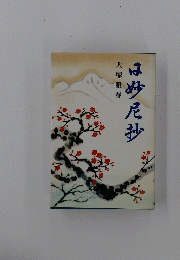 日妙尼抄
大塚雅春